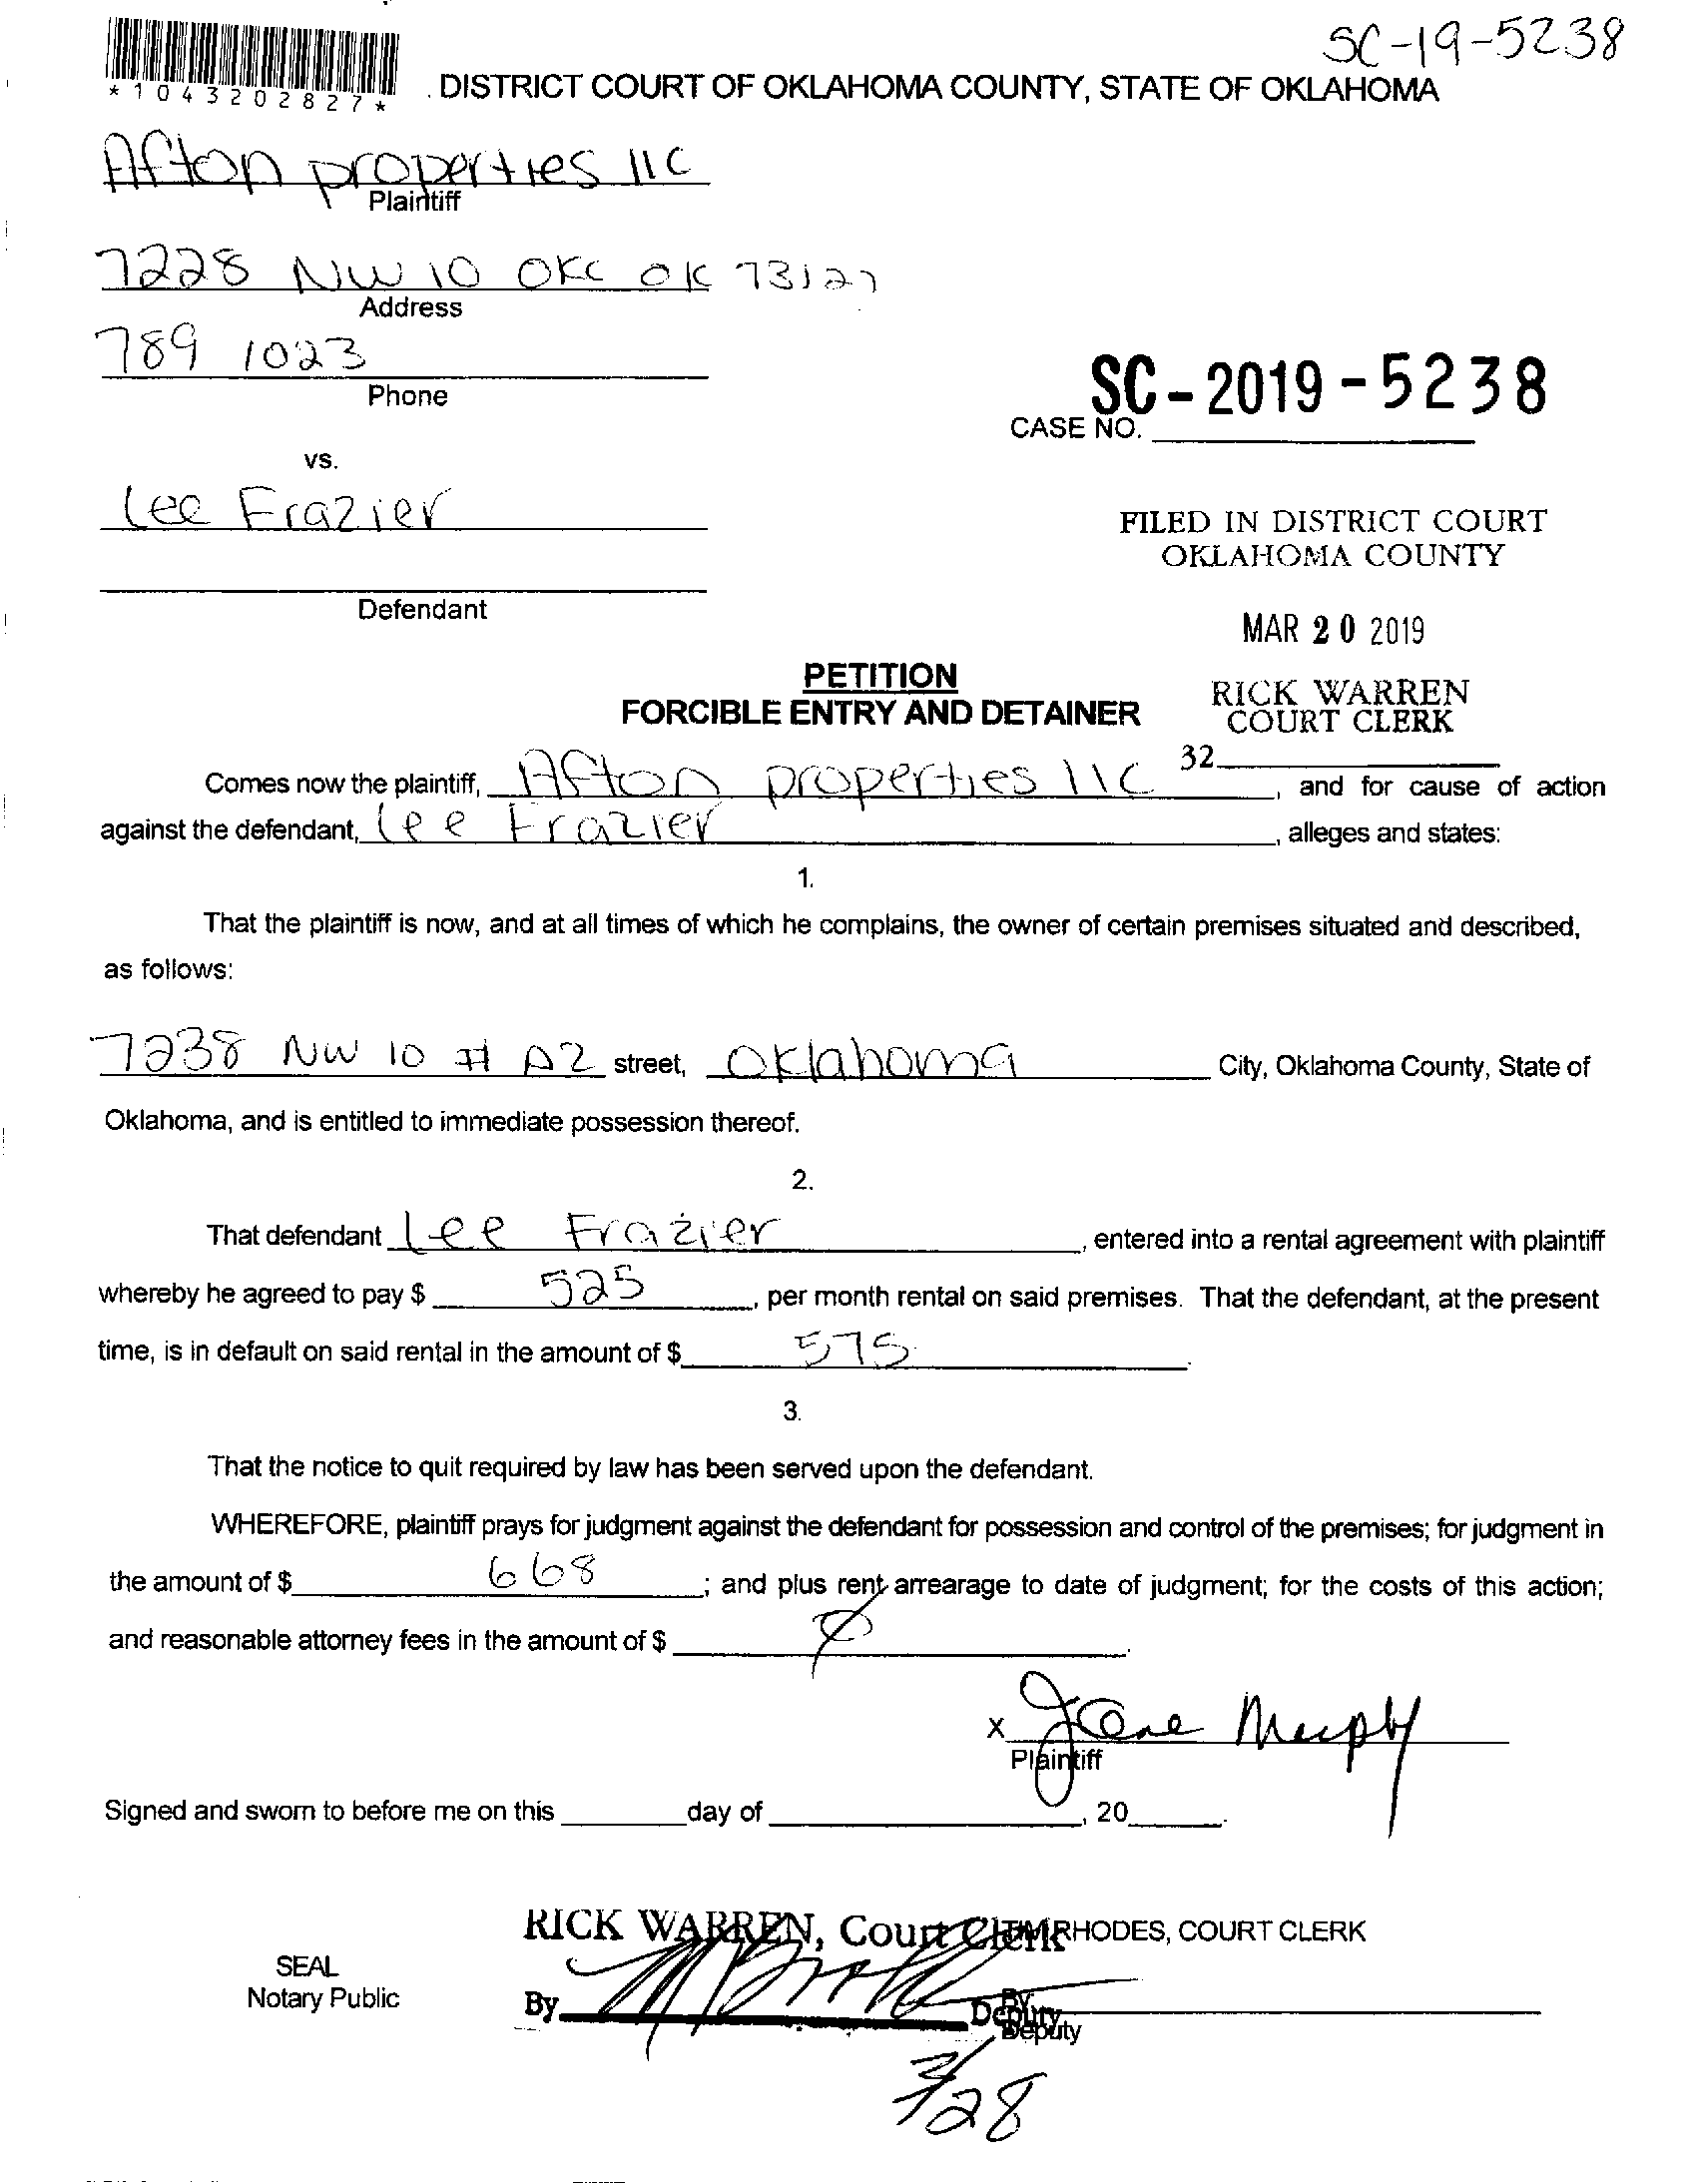 SC-19-5238
*1043202827*
DISTRICT COURT OF OKLAHOMA COUNTY, STATE OF OKLAHOMA
Afton properties llc
Plaintiff
7228 NW 10 OKC OK 73127
Address
789 1023
Phone
SC-2019-5238
CASE NO.
vs.
Lee Frazier
FILED IN DISTRICT COURT
OKLAHOMA COUNTY
Defendant
MAR 20 2019
PETITION
FORCIBLE ENTRY AND DETAINER
RICK WARREN
COURT CLERK
32
Comes now the plaintiff, Afton properties llc, and for cause of action
against the defendant, Lee Frazier, alleges and states:
1.
That the plaintiff is now, and at all times of which he complains, the owner of certain premises situated and described,
as follows:
7238 NW 10 # A2 street, Oklahoma City, Oklahoma County, State of
Oklahoma, and is entitled to immediate possession thereof.
2.
That defendant Lee Frazier, entered into a rental agreement with plaintiff
whereby he agreed to pay $ 525, per month rental on said premises. That the defendant, at the present
time, is in default on said rental in the amount of $ 575.
3.
That the notice to quit required by law has been served upon the defendant.
WHEREFORE, plaintiff prays for judgment against the defendant for possession and control of the premises; for judgment in
the amount of $ 668; and plus rent arrearage to date of judgment; for the costs of this action;
and reasonable attorney fees in the amount of $
X Jane Murphy
Plaintiff
Signed and sworn to before me on this day of , 20
RICK WARREN, Court Clerk RHODES, COURT CLERK
SEAL
Notary Public
By Deputy By
Deputy
3/28